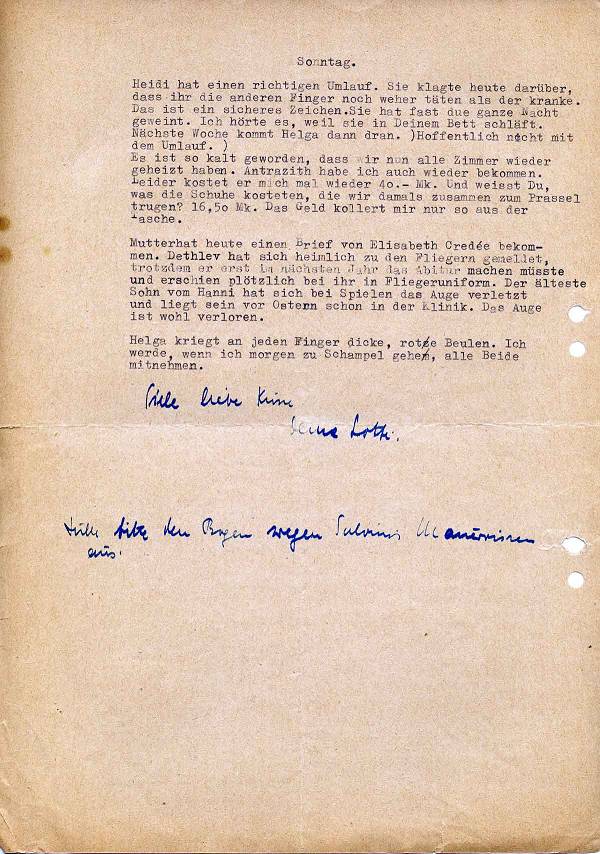 Sonntag.
Heidi hat einen richtigen Umlauf. Sie klagte heute darüber,
dass ihr die anderen Finger noch weher täten als der kranke.
Das ist ein sicheres Zeichen.Sie hat fast due ganze Nacht
geweint. Ich hörte es, weil sie in Deinem Bett schläft.
Nächste Woche kommt Helga dann dran. )Hoffentlich nicht mit
dem Umlauf. )
Es ist so kalt geworden, dass wir nun alle Zimmer wieder
geheizt haben. Antrazith habe ich auch wieder bekommen.
Leider kostet er mich mal wieder 40.- Mk. Und weisst Du,
was die Schuhe kosteten, die wir damals zusammen zum Prassel
trugen? 16,50 Mk. Das Geld kollert mir nur so aus der
Tasche.
Mutterhat heute einen Brief von Elisabeth Credée bekom-
men. Dethlev hat sich heimlich zu den Fliegern gemeldet,
trotzdem er erst im nächsten Jahr das Abitur machen müsste
und erschien plötzlich bei ihr in Fliegeruniform. Der älteste
Sohn vom Hanni hat sich bei Spielen das Auge verletzt
und liegt sein vor Ostern schon in der Klinik. Das Auge
ist wohl verloren.
Helga kriegt an jeden Finger dicke, rote Beulen. Ich
werde, wenn ich morgen zu Schampel gehe, alle Beide
mitnehmen.
Viele liebe Küsse
Deine Lotte.
Fülle bitte den Bogen wegen
aus.